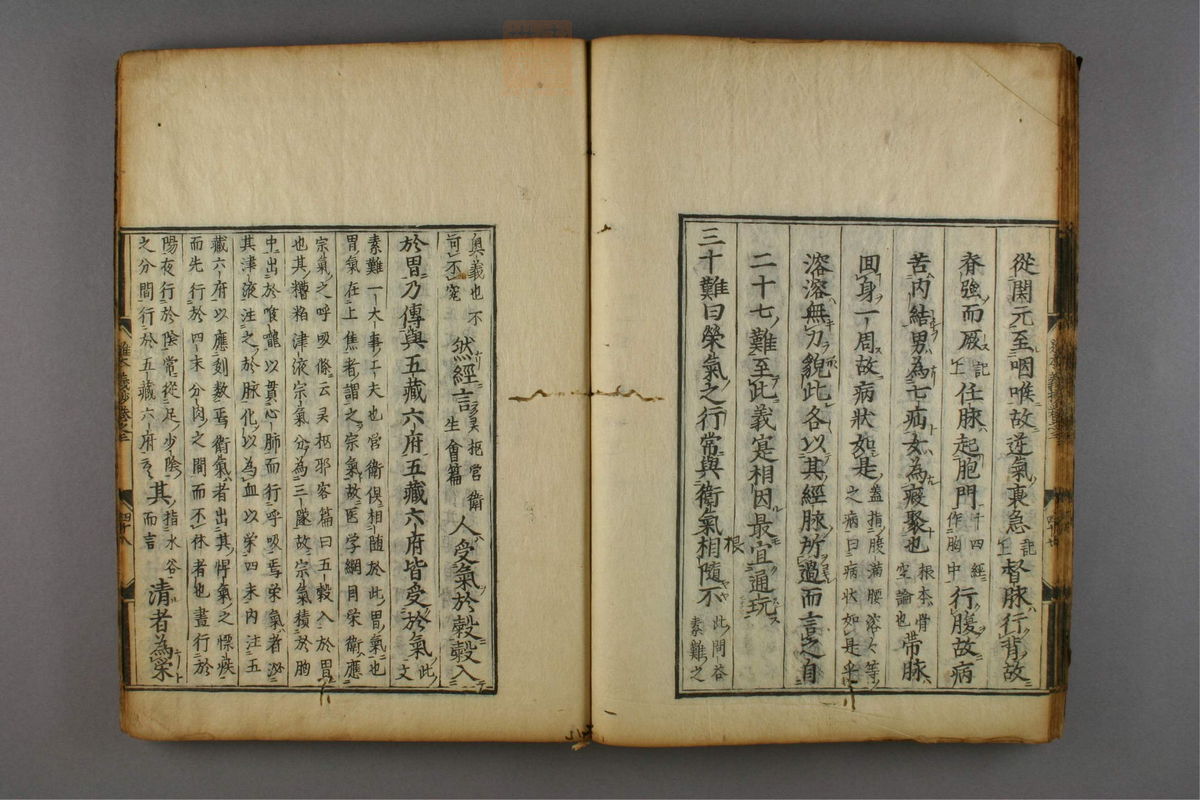 從関元至咽喉故逆氣裏急 記上 督脉行背故
脊強而厥 記上 任脉起胞門 十四經作胸中 行腹故病
苦内結男為七疝女為瘕聚也 根本骨空論也 帯脉
回身一周故病状如是 蓋指腹滿腰溶々等之病曰病状如是乎
溶溶無力貌此各以其經脉所過而言之自
二十七難至此義寔相因最宜通玩
三十難曰榮氣之行常與衛氣相隨不 此問答素難之
根
奥義也不可不究 然經言 灵枢営衛生會篇 人受氣於穀穀入
於胃乃傳與五藏六府五藏六府皆受於氣 此文
素難一大事工夫也営衛倶相随於此胃氣也
胃氣在上焦者謂之宗氣故医学綱目栄衛應
宗氣之呼吸條云灵枢邪客篇曰五穀入於胃
也其糟粕津液宗氣分為三隧故宗氣積於胸
中出於喉嚨以貫心肺而行呼吸焉栄氣者泌
其津液注之於脉化以為血以栄四末内注五
藏六府以應刻数焉衛氣者出其悍氣之慓疾
而先行於四末分肉之間而不休者也晝行於
陽夜行於陰常從足少陰
之分間行於五藏六府云々 其 指水谷而言 清者為栄